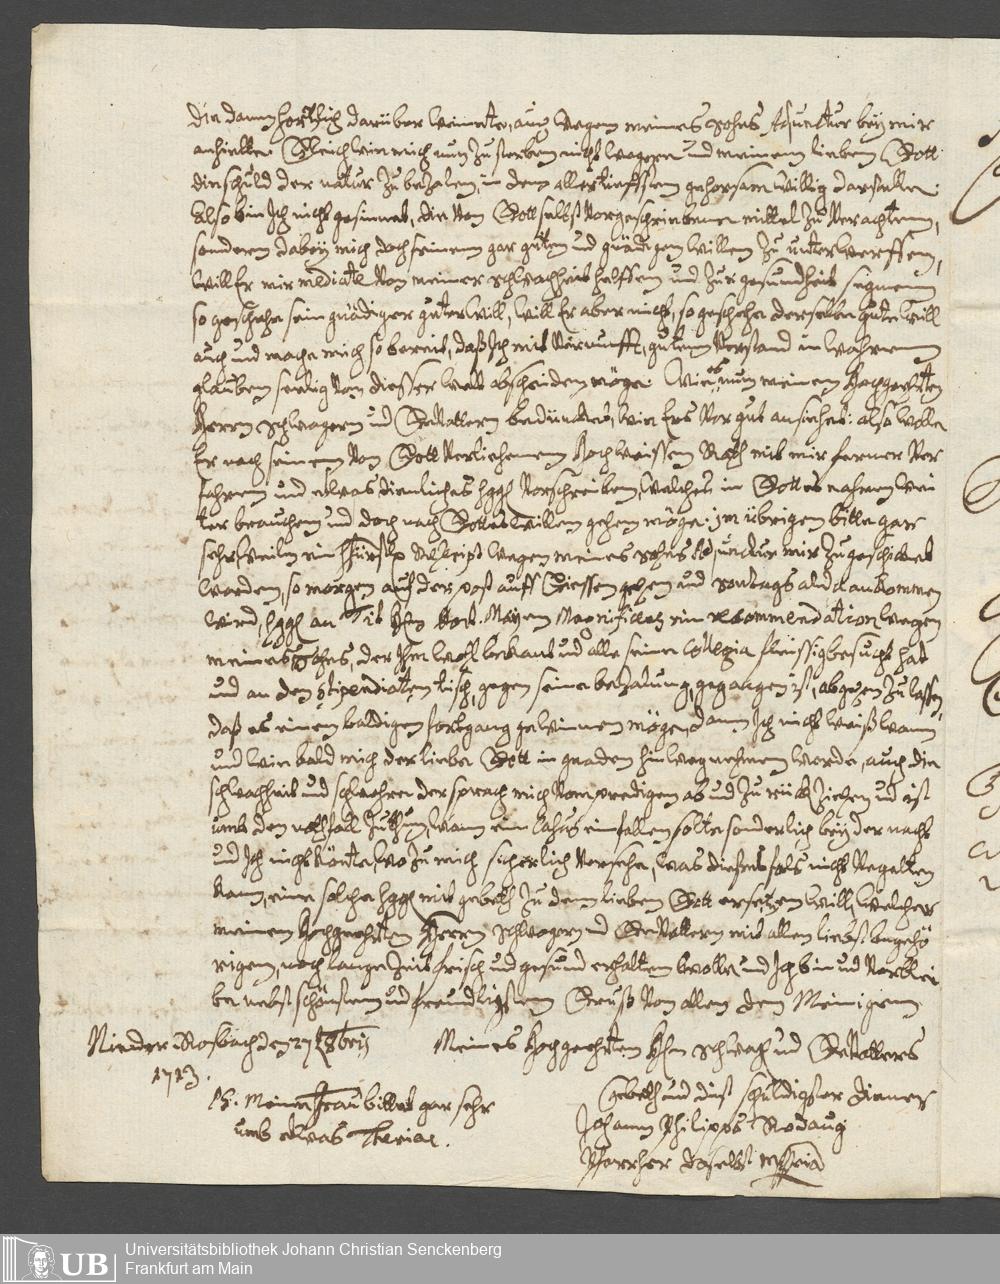 die dann hertzlich darüber weinete, auch wegen meines sohns Adjunctur bey mir
anhielte. Gleich wie mich nun zu sterben nicht wegere und meinem lieben Gott
die schuld der natur zu bezalen, in dem allertieffstem gehorsam willig darstelle:
Also bin Ich nicht gesinnet, die von Gott selbst vorgeschriebene mittel zu verachtenn,
sonderen dabey mich doch seinem gar guten und gnädigen willem zu unterwerffem,
will Er mir mediatè von meiner schwachheit helffen und zur gesundheit segnenn
so geschehe sein gnädiger guter will, will Er aber nicht, so geschehe derselbe gute will
auch und mache mich so bereit, daß Ich mit vernunfft, gutem verstand in wahrem
glauben seelig von diesser welt abscheiden möge. Wie es nun meinem Hochgeehrten
Herrn schwagern und Gevattern bedüncket, wie Ers vor gut ansiehet: also wolle
Er nach seinem von Gott verliehenem Hochweissen Rath mit mir ferner ver
fahren und etwas dienliches hggl vorschreiben, welches in Gottes nahmen wei
ter brauchem und doch nach Gottes willem gehen möge. im übrigen bitte gar
sehr weilen ein wegen meines sohns Adjunctur mir zugeschicket
worden, so morgen auff der post auff Giessen gehen und sontags alda ankommen
wird, hggl an Tit Hhn Doct. Mayen Magnificenz ein recommendation wegen
meines Sohns, der Ihm wohl bekant und alle seine Collegia fleissig besucht hat
und an den stipendiaten tisch, gegen seine bezalung, gegangen ist, abgehen zu lassen,
daß es einem baldigen fortgang gewinnen möge, dann Ich nicht weiß wann
und wie bald mich der liebe Gott in gnaden hinwegnehmen werde, auch die
schwachheit und schwehre der sprach mich vom predigen ab und zurück ziehen und ist
umb den nothfall zuthun, wann ein Casus einfallen solte sonderlich bey der nacht
und Ich nicht könte, wozu mich sicherlich versehe, was diesfals nicht vergelten
kann, eine solche hggl mit gebeth zu dem lieben Gott ersetzen will, welcher
meinem Hochgeehrten Herrn schwagern und Gevattern mit allen liebst angehö
rigem, noch lange zeit frisch und gesund erhalten wolle und Ich bin und verblei
be nebst schönstem und freundligstem Gruß von allen den Meinigem
Nieder Rosbach den 27 8bris
1713.
Meines Hochgeehrten Hhn schwag und Gevatters
Gebeth und dinst schuldigster diener
Johann Philipps Rodaug
Pfarrher daselbst mppria
PS. Meine Frau bittet gar sehr
umb etwas Theriac.
Universitätsbibliothek Johann Christian Senckenberg
Frankfurt am Main
UB